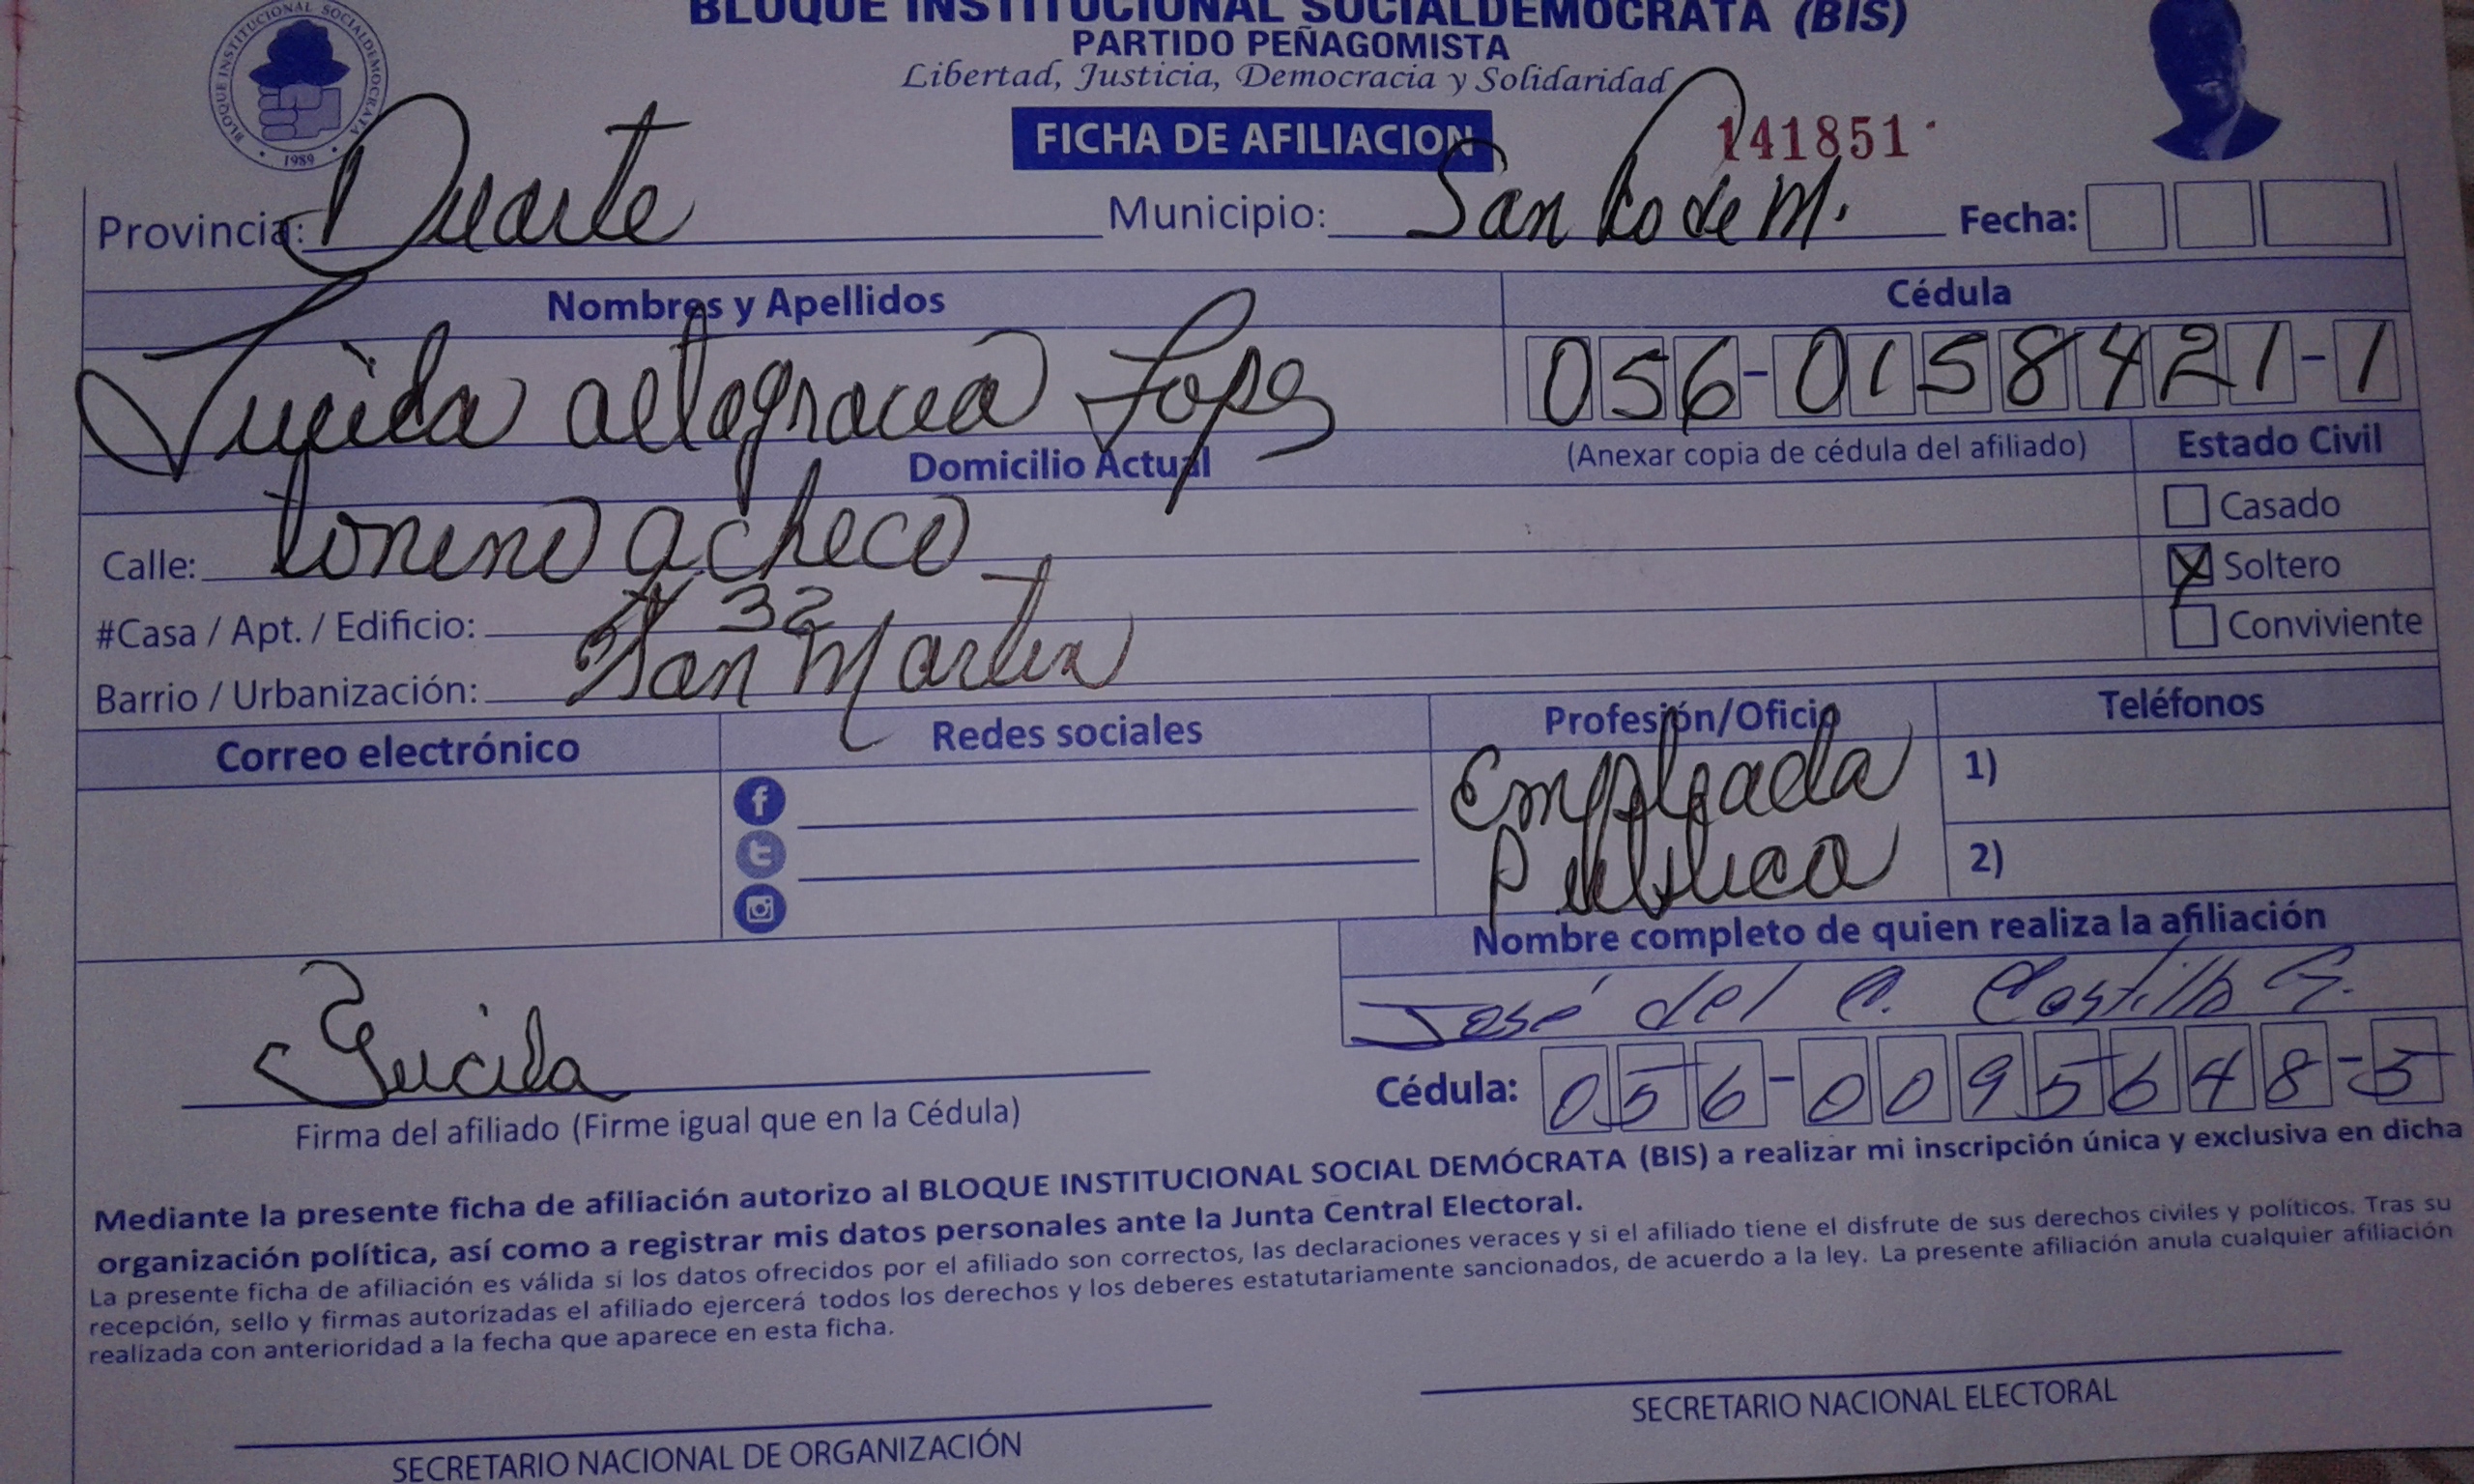 BLOQUE INSTITUCIONAL SOCIALDEMOCRATA (BIS)
PARTIDO PEÑAGOMISTA
Libertad, Justicia, Democracia y Solidaridad
BLOQUE INSTITUCIONAL SOCIALDEMOCRATA
1989
FICHA DE AFILIACION
141851
Provincia: Duarte Municipio: San Fco de M. Fecha:
Nombres y Apellidos Cédula
Lucida altagracia Lopez 056-0158421-1
Domicilio Actual (Anexar copia de cédula del afiliado) Estado Civil
Casado
Calle: acheco
X Soltero
#Casa / Apt. / Edificio: # 32
Conviviente
Barrio / Urbanización: San Martin
Correo electrónico Redes sociales Profesión/Oficio Teléfonos
Empleada
Publica
1)
2)
Nombre completo de quien realiza la afiliación
José del C. Castillo G.
Cédula: 056-0095648-5
Firma del afiliado (Firme igual que en la Cédula)
Mediante la presente ficha de afiliación autorizo al BLOQUE INSTITUCIONAL SOCIAL DEMÓCRATA (BIS) a realizar mi inscripción única y exclusiva en dicha
organización política, así como a registrar mis datos personales ante la Junta Central Electoral.
La presente ficha de afiliación es válida si los datos ofrecidos por el afiliado son correctos, las declaraciones veraces y si el afiliado tiene el disfrute de sus derechos civiles y políticos. Tras su
recepción, sello y firmas autorizadas el afiliado ejercerá todos los derechos y los deberes estatutariamente sancionados, de acuerdo a la ley. La presente afiliación anula cualquier afiliación
realizada con anterioridad a la fecha que aparece en esta ficha.
SECRETARIO NACIONAL DE ORGANIZACIÓN
SECRETARIO NACIONAL ELECTORAL